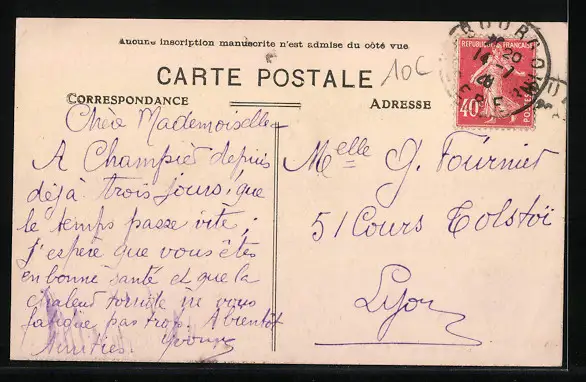 Aucune inscription manuscrite n'est admise du côté vue
CARTE POSTALE
10C
CORRESPONDANCE
ADRESSE
REPUBLIQUE FRANÇAISE
40c
POSTES
Chère Mademoiselle
A Champier depuis
déjà trois jours, que
le temps passe vite;
j'espère que vous êtes
en bonne santé et que la
chaleur torride ne vous
fatigue pas trop. A bientôt
Amitiés. Yvonne
Melle G. Fournier
51 Cours Tolstoï
Lyon